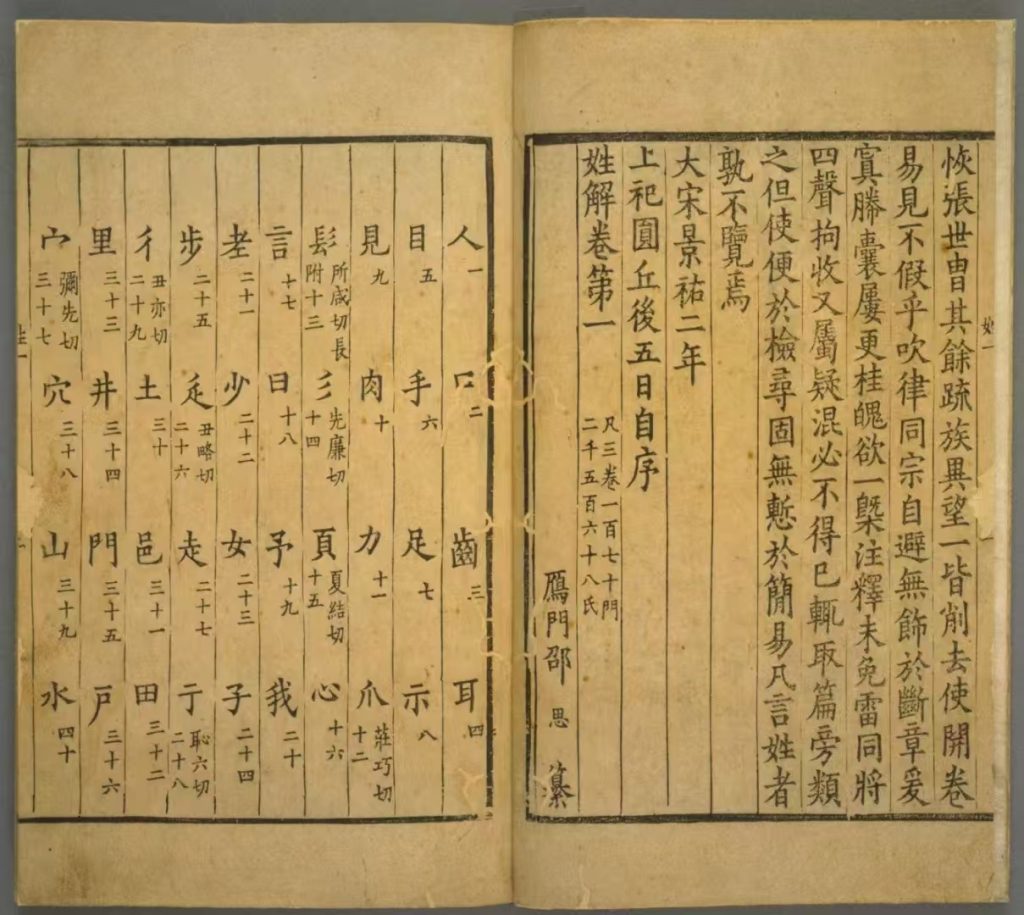 恢張世冑其餘疏族異望一皆削去使開卷
易見不假乎吹律同宗自避無飾於斷章爰
寘縢囊屢更桂魄欲一槩注釋未免雷同將
四聲拘收又屬疑混必不得已輒取篇旁類
之但使便於檢尋固無慙於簡易凡言姓者
孰不覽焉
大宋景祐二年
上祀圓丘後五日自序
姓解卷第一 凡三卷一百七十門二千五百六十八氏
鴈門邵 思 纂
人一 口二 齒三 耳四
目五 手六 足七 示八
見九 肉十 力十一 爪莊巧切十二
髟所咸切長附十三 彡先廉切十四 頁夏結切十五 心十六
言十七 曰十八 予十九 我二十
老二十一 少二十二 女二十三 子二十四
步二十五 辵丑略切二十六 走二十七 亍恥六切二十八
彳丑亦切二十九 土三十 邑三十一 田三十二
里三十三 井三十四 門三十五 戶三十六
宀彌先切三十七 穴三十八 山三十九 水四十